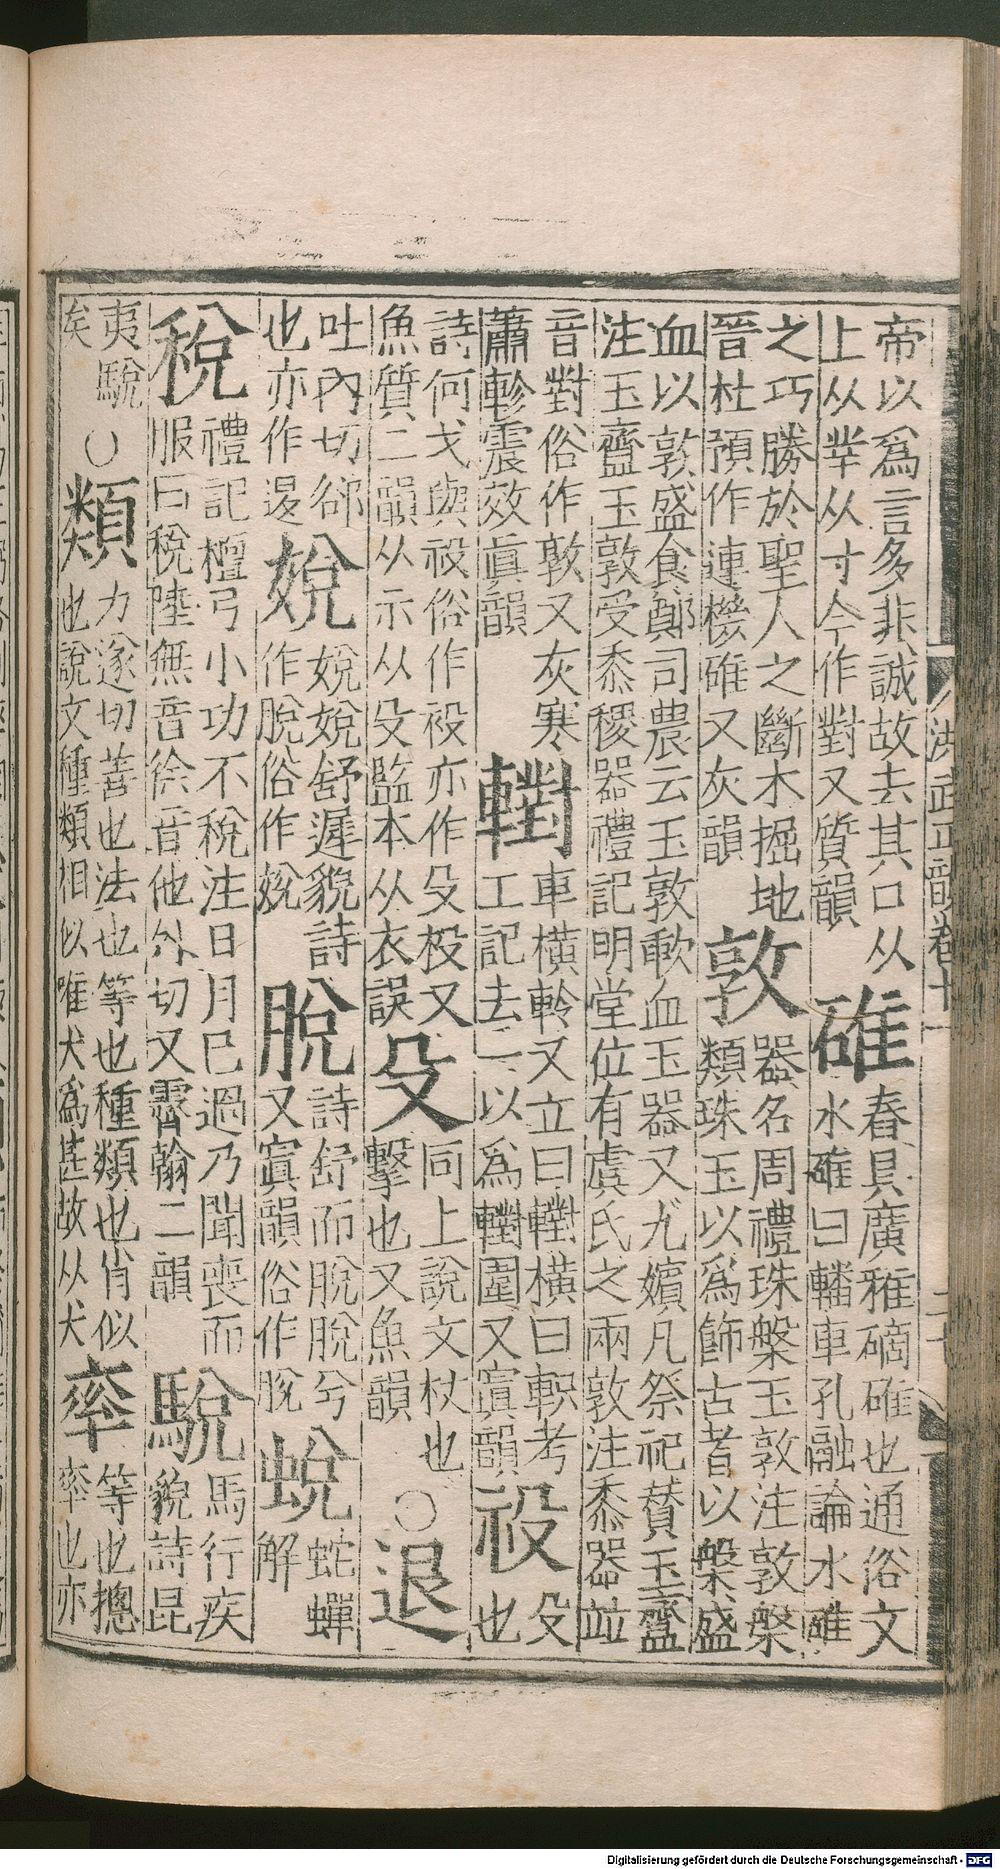 帝以爲言多非誠故去其口从
上从丵从寸今作對又質韻
碓
舂具廣雅䃭碓也通俗文
水碓曰轓車孔融論水碓
之巧勝於聖人之斷木掘地
晉杜預作連機碓又灰韻
敦
器名周禮珠槃玉敦注敦槃
類珠玉以爲飾古者以槃盛
血以敦盛食鄭司農云玉敦歃血玉器又九嬪凡祭祀贊玉齍
注玉齍玉敦受黍稷器禮記明堂位有虞氏之兩敦注黍器竝
音對俗作敦又灰寒
蕭軫震效眞韻
轛
車橫軨又立曰轛橫曰軹考
工記去一以爲轛圍又寘韻
祋
殳也
詩何戈與祋俗作祋亦作殳杸又
魚質二韻从示从殳監本从衣誤
殳
同上說文杖也
擊也又魚韻
○
退
吐內切郤
也亦作𨓤
娧
娧娧舒遲貌詩
作脫俗作娧
脫
詩舒而脫脫兮
又寘韻俗作脫
蛻
蛇蟬
解
稅
禮記檀弓小功不稅注日月已過乃聞喪而
服曰稅陸無音徐音他外切又霽翰二韻
駾
馬行疾
貌詩昆
夷駾
矣
○
類
力遂切善也法也等也種類也肖似
也說文種類相似唯犬爲甚故从犬
率
等也摠
率也亦
洪武正韻卷十一